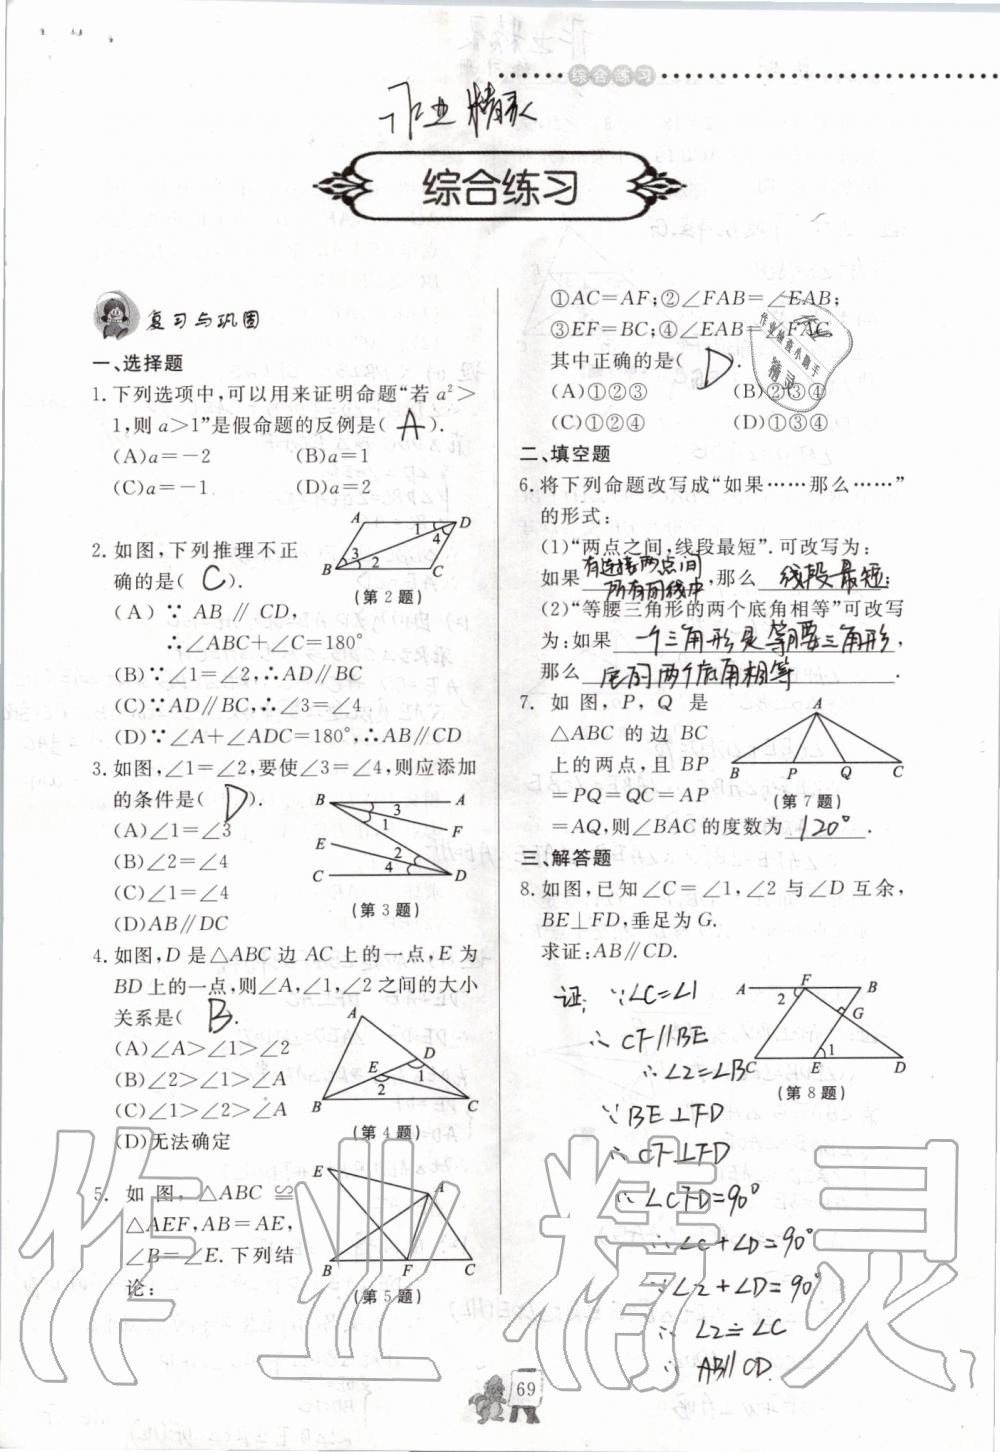 综合练习
作业精灵
综合练习
复习与巩固
一、选择题
1.下列选项中,可以用来证明命题“若 a²>
1,则 a>1”是假命题的反例是( A ).
(A)a=-2 (B)a=1
(C)a=-1 (D)a=2
2.如图,下列推理不正
确的是( C ).
(A)∵ AB∥CD,
∴∠ABC+∠C=180°
(B)∵∠1=∠2,∴AD∥BC
(C)∵AD∥BC,∴∠3=∠4
(D)∵∠A+∠ADC=180°,∴AB∥CD
A 1 D
3 2 4
B C
(第 2 题)
3.如图,∠1=∠2,要使∠3=∠4,则应添加
的条件是( D ).
(A)∠1=∠3
(B)∠2=∠4
(C)∠1=∠4
(D)AB∥DC
B 3 A
1 F
E 2
C 4 D
(第 3 题)
4.如图,D 是△ABC 边 AC 上的一点,E 为
BD 上的一点,则∠A,∠1,∠2 之间的大小
关系是( B .
(A)∠A>∠1>∠2
(B)∠2>∠1>∠A
(C)∠1>∠2>∠A
(D)无法确定
A
D
E 1
2
B C
(第 4 题)
5. 如图,△ABC ≌
△AEF,AB=AE,
∠B=∠E.下列结
论:
E
A
B F C
(第 5 题)
①AC=AF;②∠FAB=∠EAB;
③EF=BC;④∠EAB=∠FAC
其中正确的是( D .
(A)①②③ (B)②③④
(C)①②④ (D)①③④
作业检查小助手
精灵
二、填空题
6.将下列命题改写成“如果……那么……”
的形式:
(1)“两点之间,线段最短”.可改写为:
如果 有连接两点间
所有的线中 ,那么 线段最短;
(2)“等腰三角形的两个底角相等”可改写
为:如果 一个三角形是等腰三角形,
那么 底的两个底角相等 .
7. 如图,P,Q 是
△ABC 的边 BC
上的两点,且 BP
=PQ=QC=AP
=AQ,则∠BAC 的度数为 120° .
A
B P Q C
(第 7 题)
三、解答题
8.如图,已知∠C=∠1,∠2 与∠D 互余,
BE⊥FD,垂足为 G.
求证:AB∥CD.
A F B
2
G
1
C E D
(第 8 题)
证: ∵∠C=∠1
∴ CF∥BE
∴∠2=∠B
∵ BE⊥FD
∴ CF⊥FD
∴ ∠CFD=90°
∴ ∠C+∠D=90°
∵ ∠2+∠D=90°
∴ ∠2=∠C
∴ AB∥CD.
作业精灵
69